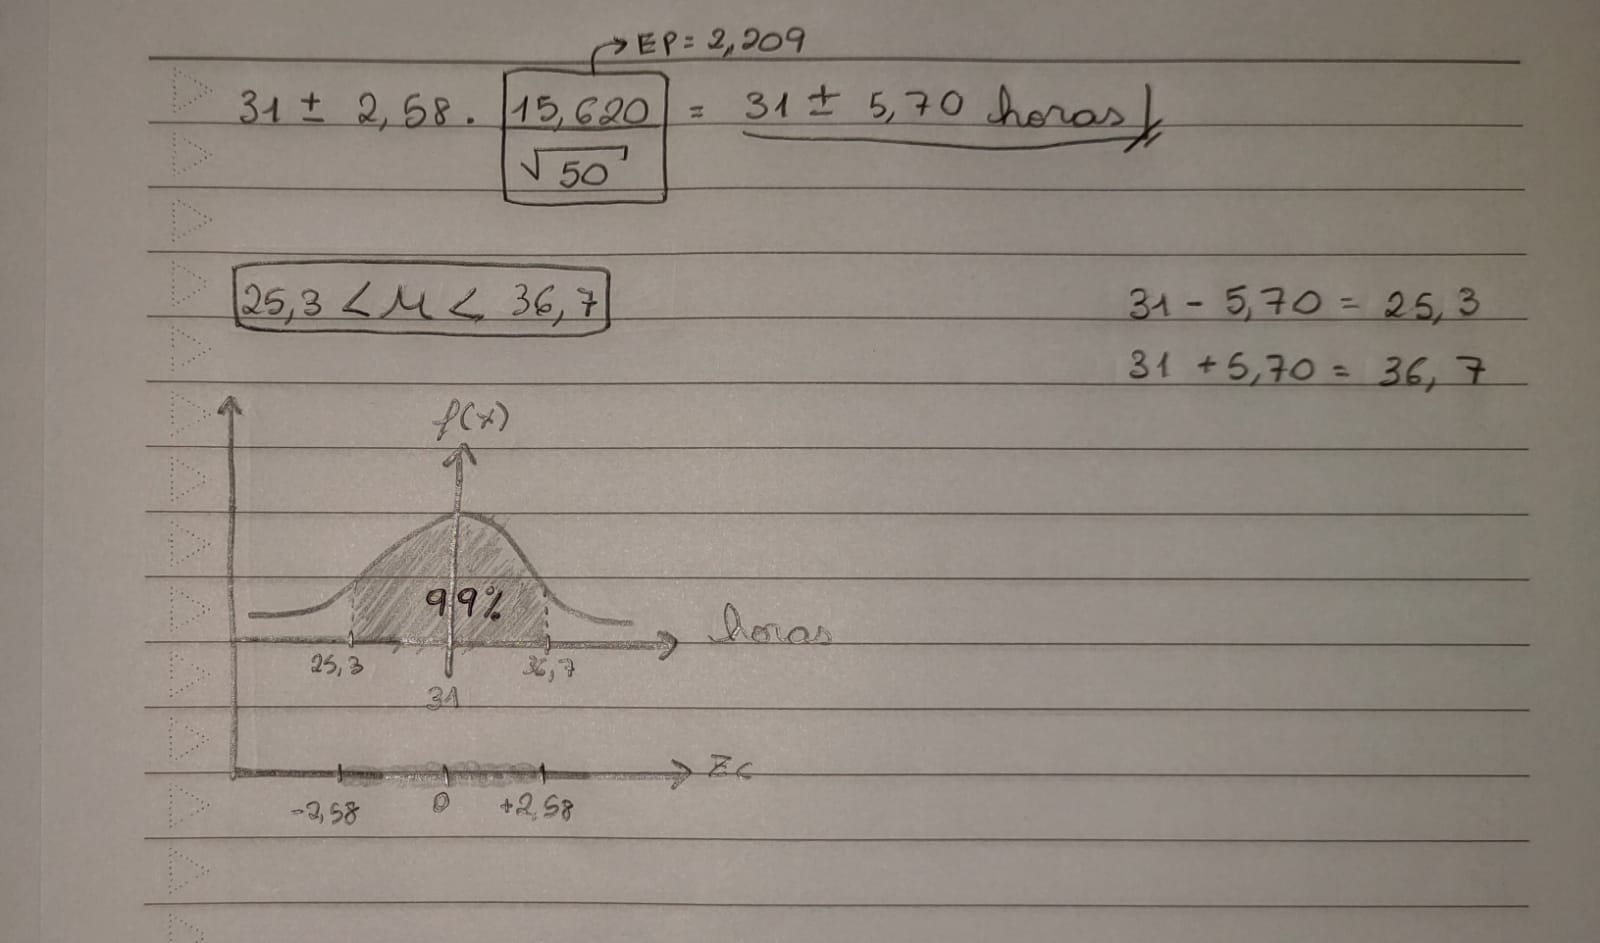 EP = 2,209
31 ± 2,58 . 15,620 = 31 ± 5,70 horas
√50
25,3 < μ < 36,7
31 - 5,70 = 25,3
31 + 5,70 = 36,7
f(x)
99%
horas
25,3
36,7
31
Zc
-2,58
0
+2,58